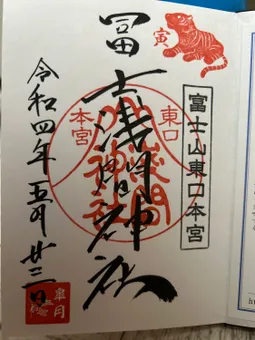 寅
富士山東口本宮
冨士浅間神社
東口
本宮
令和四年五月廿三日
皐月